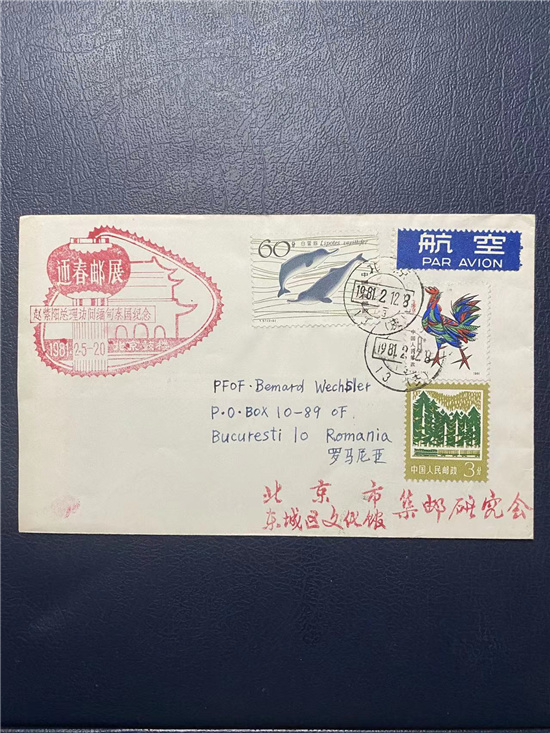 迎春邮展
赵紫阳总理访问缅甸泰国纪念
1981·2-5-20
60分
白𬶨豚 Lipotes vexillifer
航空
PAR AVION
1981.2.12.8
1981.2.12.8
中国人民邮政 3分
PFOF·Bernard Wechsler
P.O.BOX 10-89 OF.
Bucuresti 10 Romania
罗马尼亚
北京市
东城区文化馆 集邮研究会